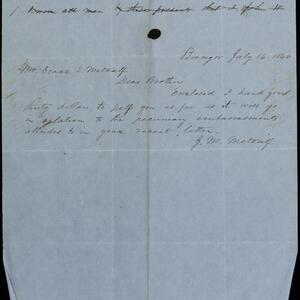 Know all men by these presents that I John
Bangor July 14. 1840
Mr. Isaac S. Metcalf
Dear Brother
Enclosed I hand you
thirty dollars to help you as far as it will go
in relation to the pecuniary embarrassments
alluded to in your recent letter.
J. M. Metcalf